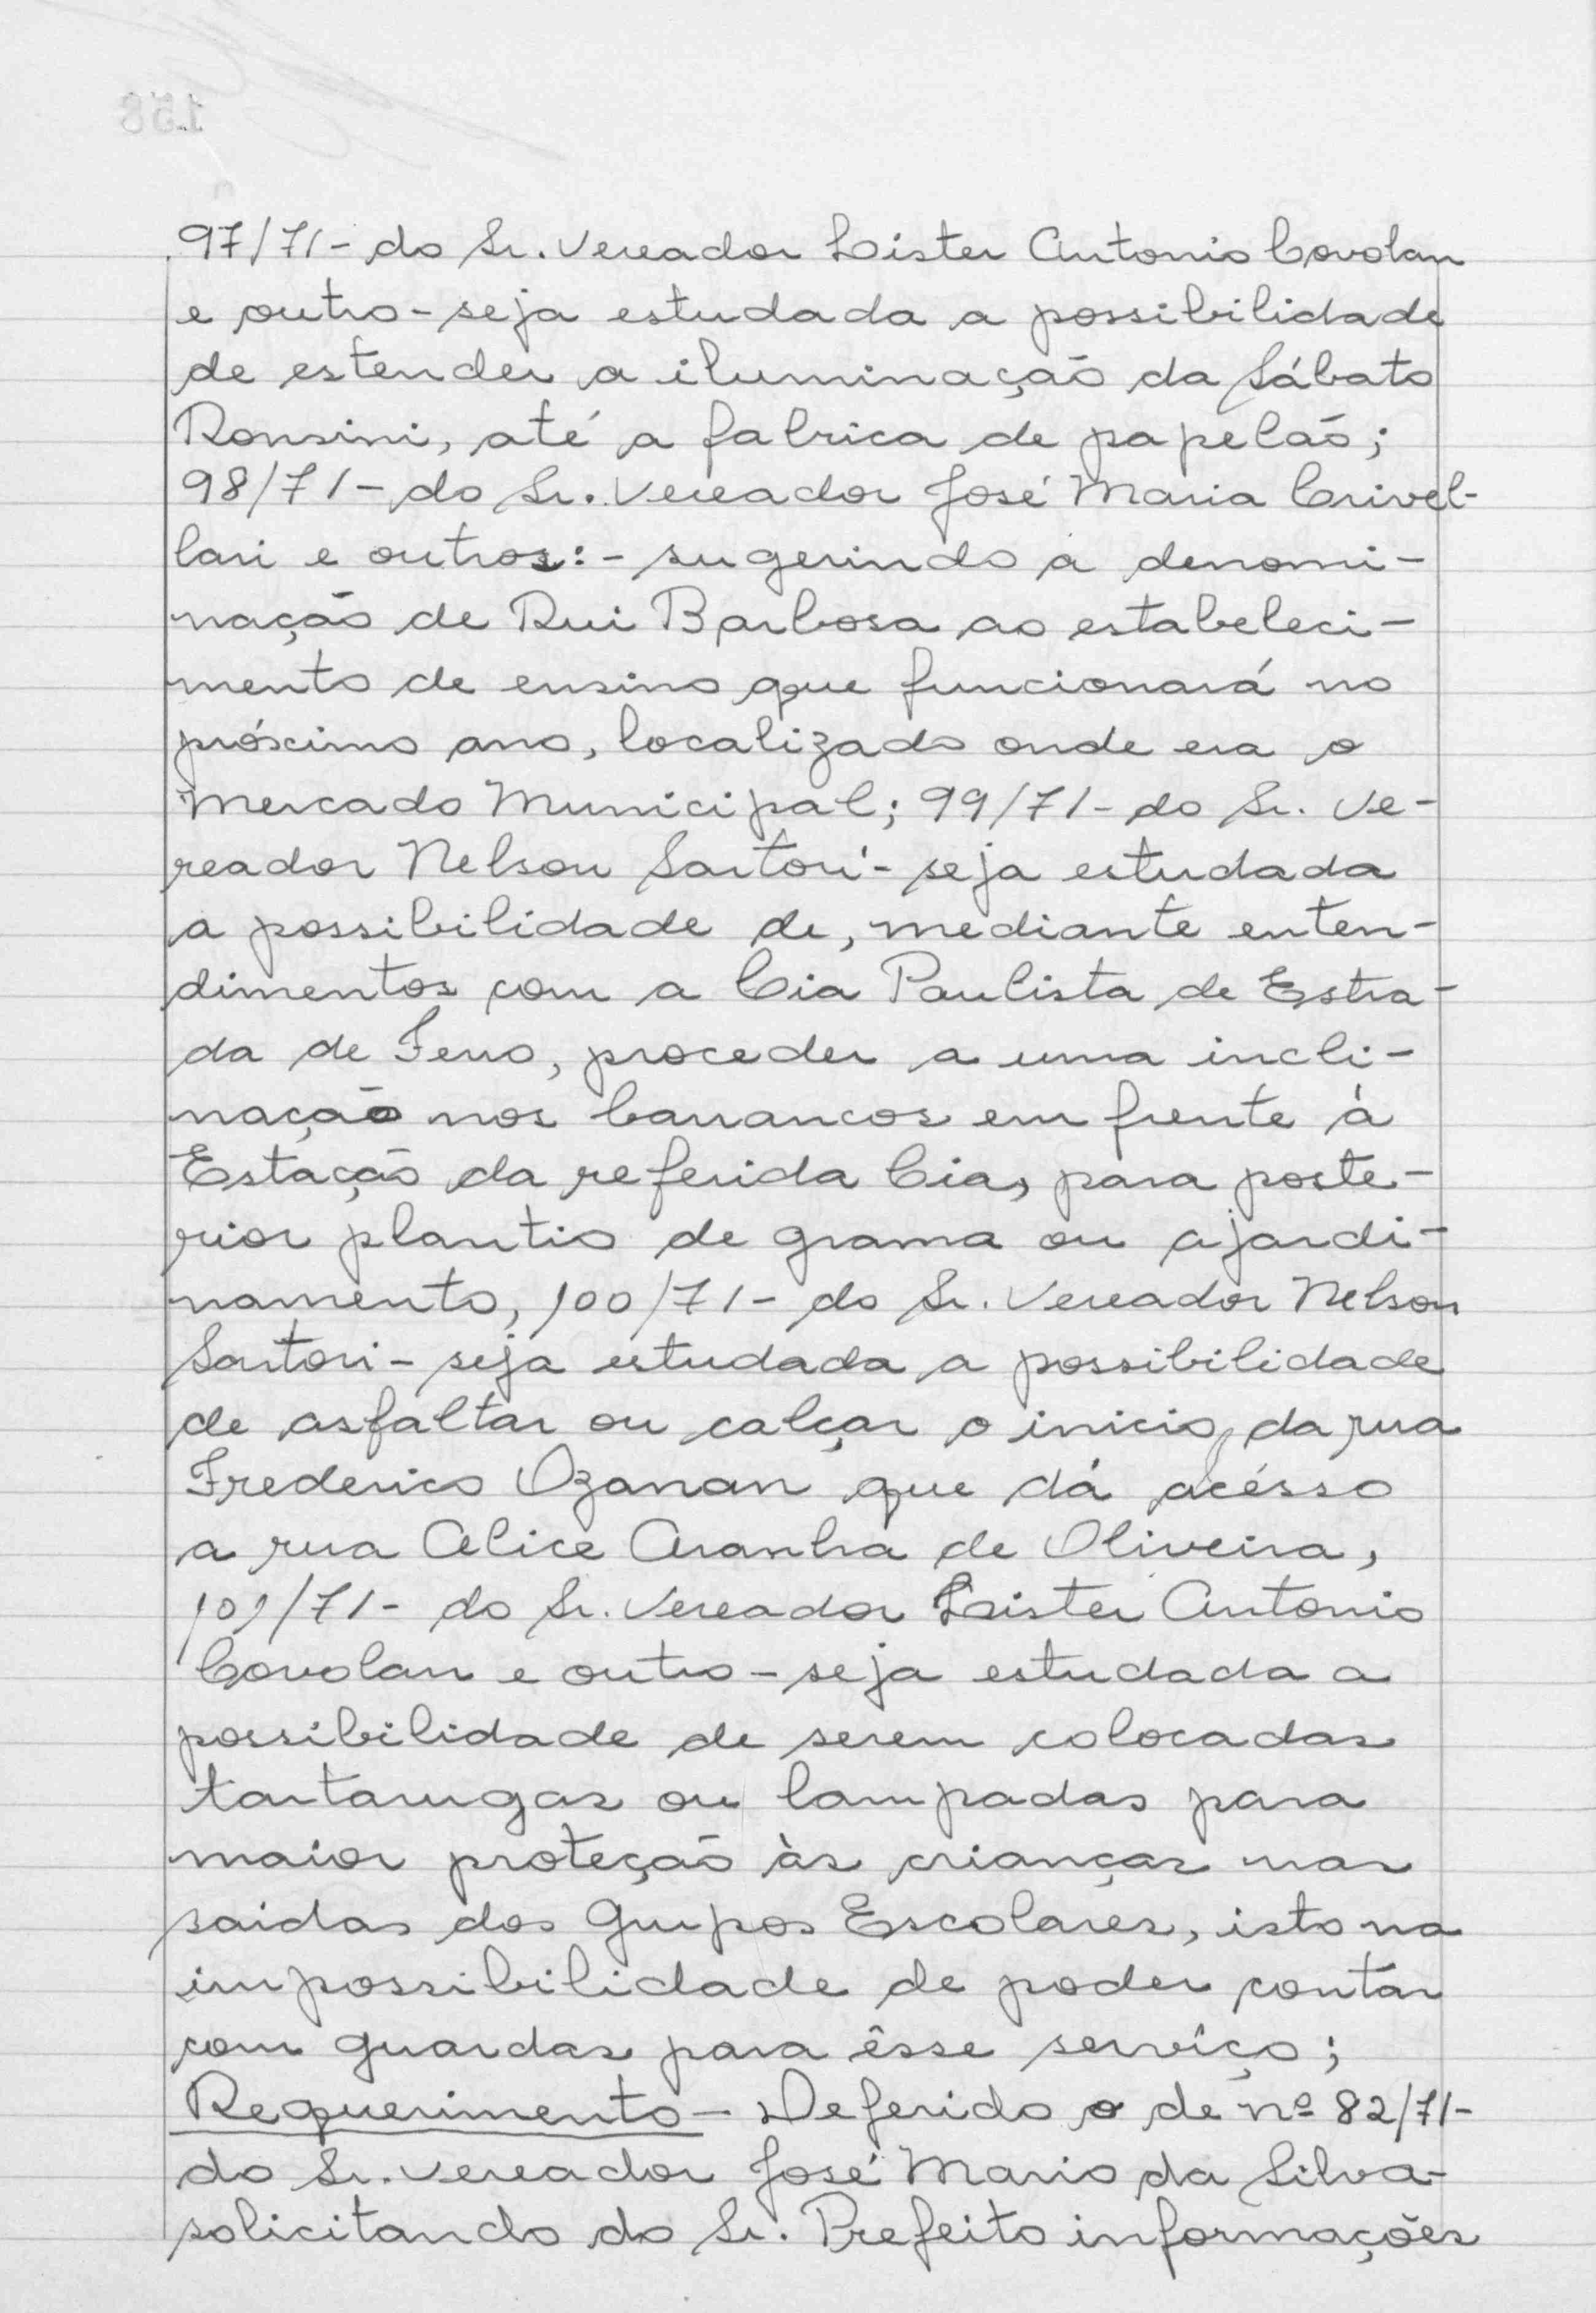 158
97/71- do Sr. Vereador Lister Antonio Covolan
e outro - seja estudada a possibilidade
de estender a iluminação da Sábato
Ronsini, até a fabrica de papelão;
98/71- do Sr. Vereador José Maria Crivel-
lari e outros:- sugerindo a denomi-
nação de Rui Barbosa ao estabeleci-
mento de ensino que funcionará no
próximo ano, localizado onde era o
Mercado Municipal; 99/71- do Sr. Ve-
reador Nelson Sartori - seja estudada
a possibilidade de, mediante enten-
dimentos com a Cia Paulista de Estra-
da de Ferro, proceder a uma incli-
nação nos barrancos em frente à
Estação da referida Cia, para poste-
rior plantio de grama ou ajardi-
namento, 100/71- do Sr. Vereador Nelson
Sartori - seja estudada a possibilidade
de asfaltar ou calçar o inicio, da rua
Frederico Ozanan que dá acésso
a rua Alice Aranha de Oliveira,
101/71- do Sr. Vereador Lister Antonio
Covolan e outro - seja estudada a
possibilidade de serem colocadas
tartarugas ou lampadas para
maior proteção às crianças nas
saidas dos Grupos Escolares, isto na
impossibilidade de poder contar
com guardas para êsse serviço;
Requerimento - Deferido o de nº 82/71-
do Sr. Vereador José Mario da Silva-
solicitando do Sr. Prefeito informações